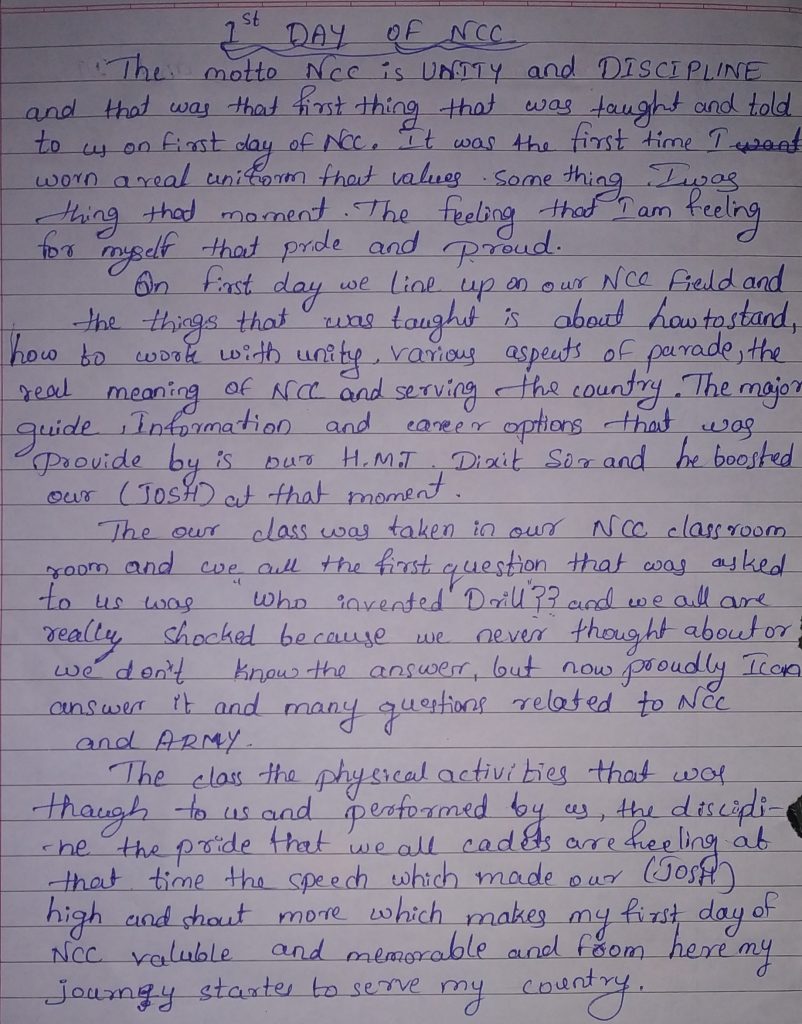 1st DAY OF NCC
The motto NCC is UNITY and DISCIPLINE
and that was that first thing that was taught and told
to us on first day of NCC. It was the first time I want
worn a real uniform that values something. I was
thing thod moment. The feeling that I am feeling
for myself that pride and proud.
On first day we line up on our NCC field and
the things that was taught is about how to stand,
how to work with unity, various aspeuts of parade, the
real meaning of NCC and serving the country. The major
guide, Information and career options that was
Provide by is our H.M.T. Dixit Sir and he boosted
our (JOSH) at that moment.
The our class was taken in our NCC classroom
room and we all the first question that was asked
to us was "Who invented Drill"?? and we all are
really shocked because we never thought about or
we don't know the answer, but now proudly I can
answer it and many questions related to NCC
and ARMY.
The class the physical activities that was
though to us and performed by us, the discipli-
-ne the pride that we all cadets are feeling at
that time the speech which made our (JOSH)
high and shout more which makes my first day of
NCC valuble and memorable and from here my
journey startes to serve my country.